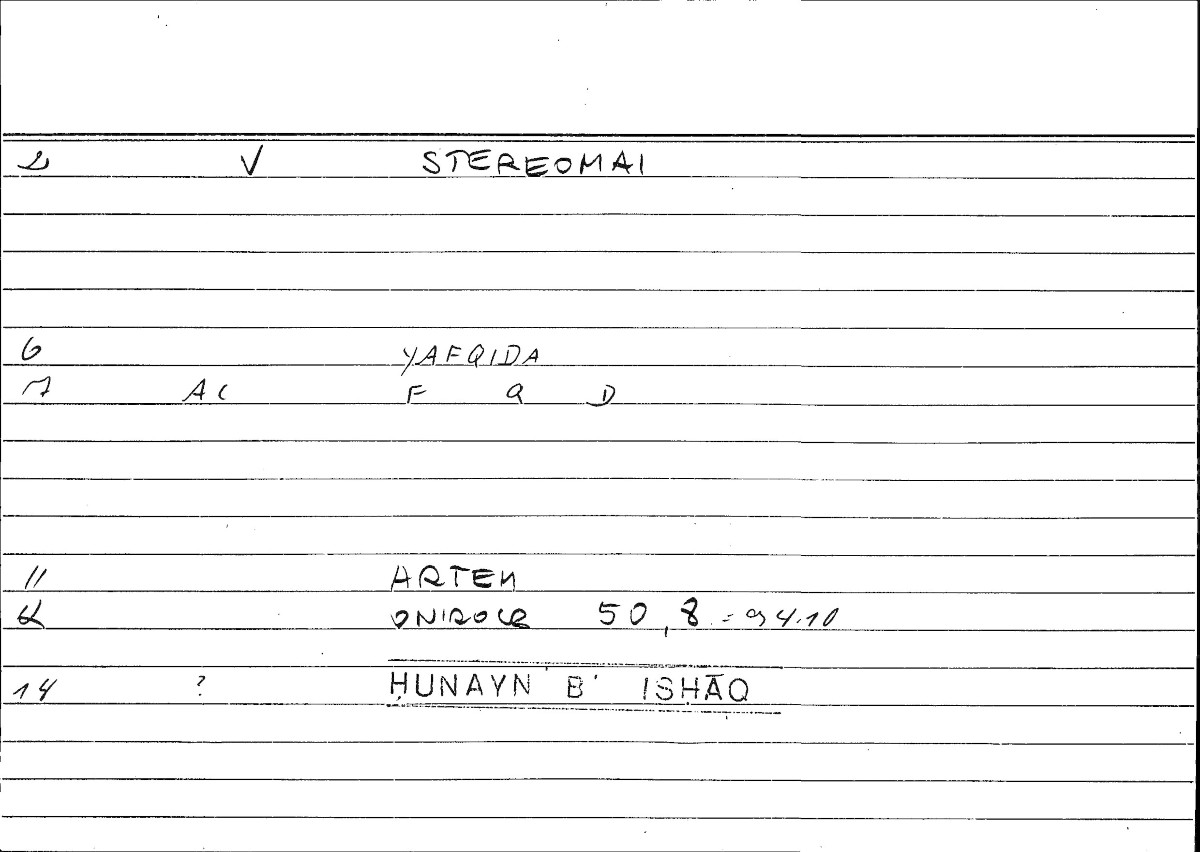 2 V STEREOMAI
6 YAFQIDA
7 AC F Q D
11 ARTEM
12 ONIROCR 50,8 = 94.10
14 ? ḤUNAYN B' ISḤĀQ